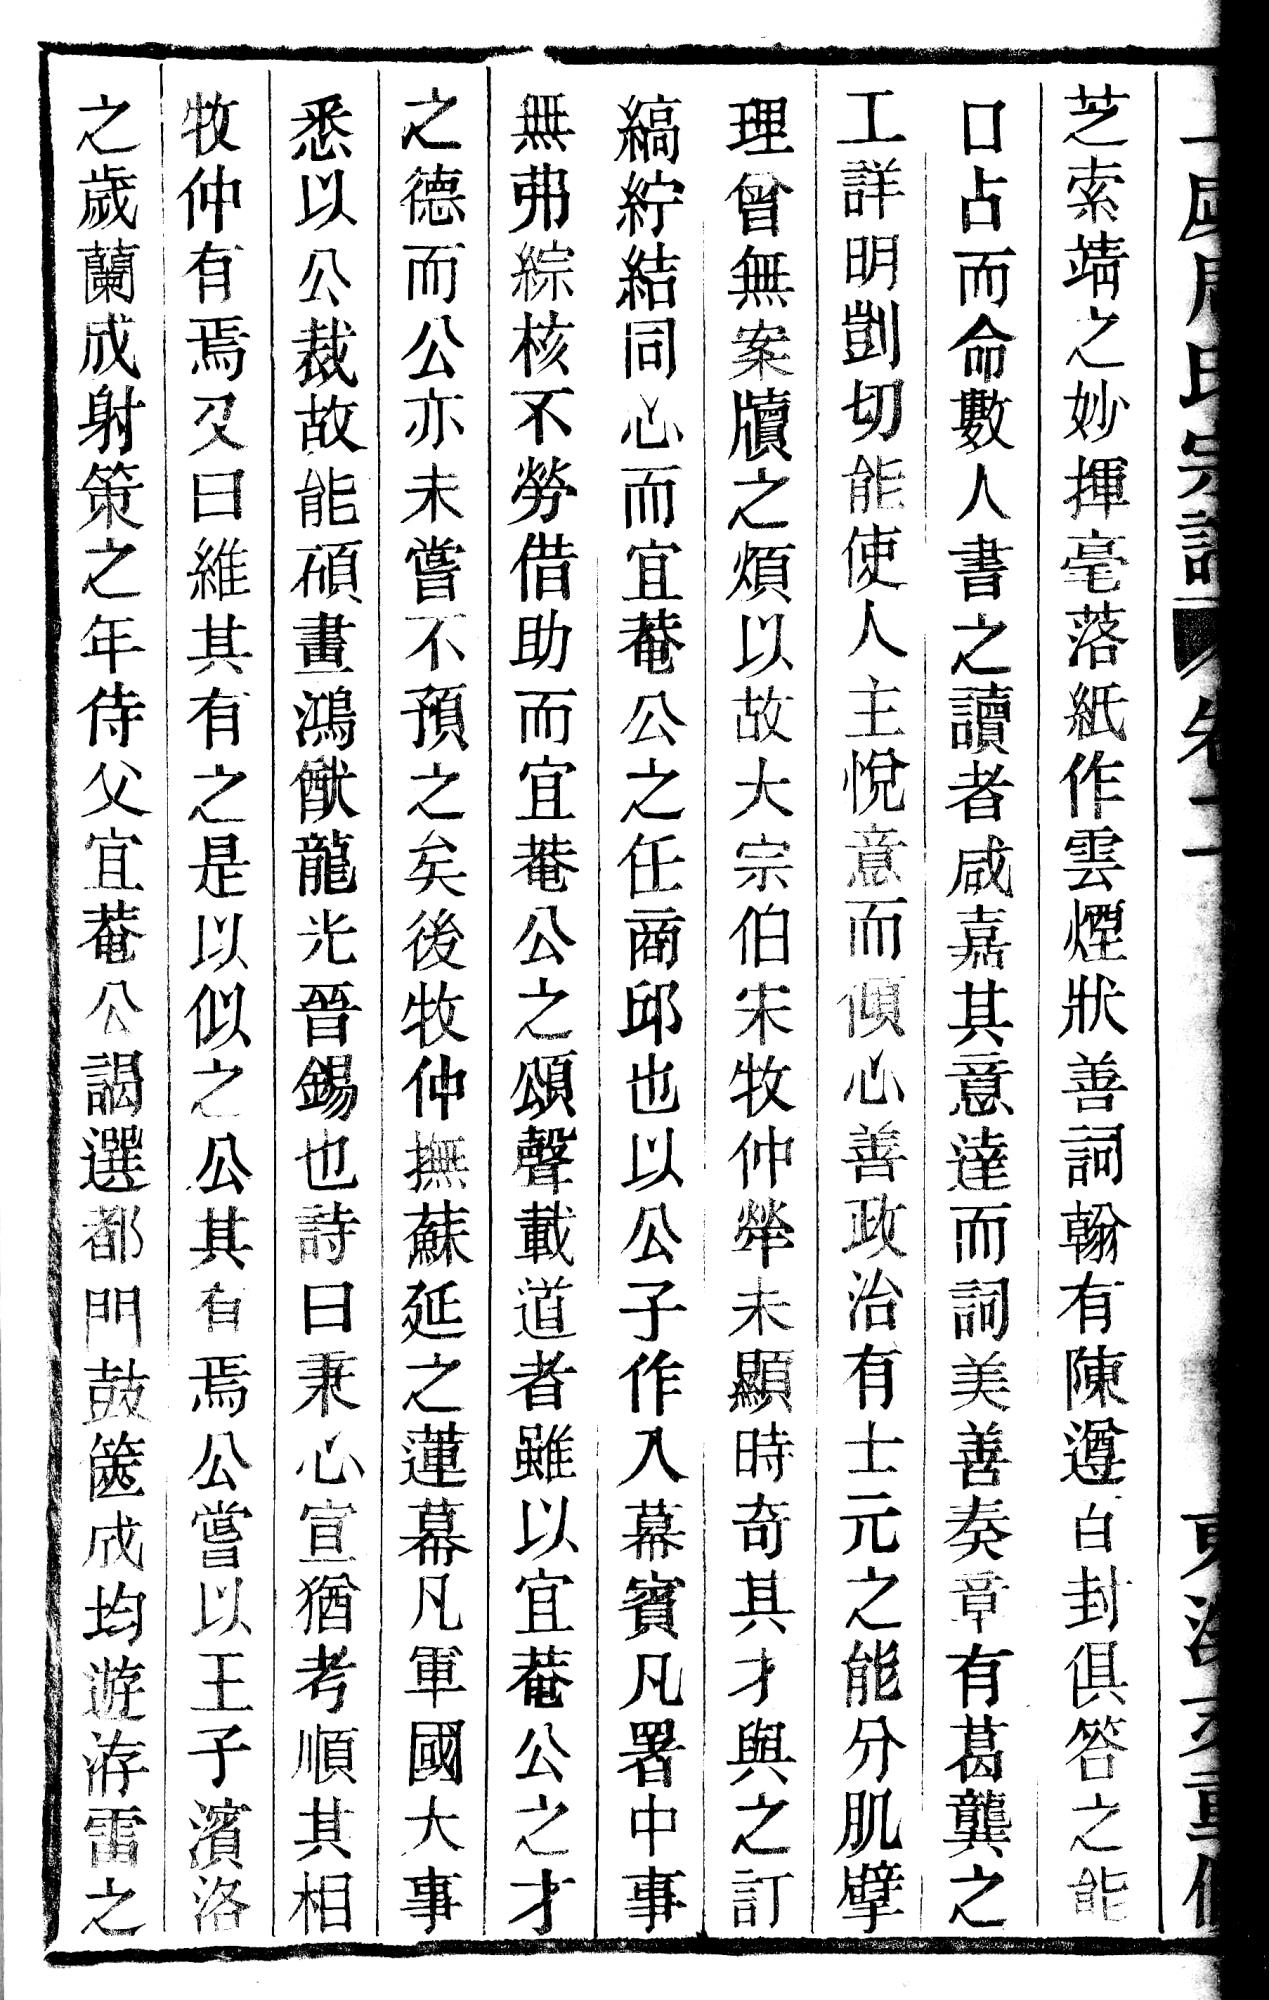 芝索靖之妙揮毫落紙作雲煙狀善詞翰有陳遵百封俱答之能
口占而命數人書之讀者咸嘉其意達而詞美善奏章有葛龔之
工詳明剴切能使人主悅意而傾心善政治有士元之能分肌擘
理曾無案牘之煩以故大宗伯宋牧仲犖未顯時奇其才與之訂
縞紵結同心而宜菴公之任商邱也以公子作入幕賓凡署中事
無弗綜核不勞借助而宜菴公之頌聲載道者雖以宜菴公之才
之德而公亦未嘗不預之矣後牧仲撫蘇延之蓮幕凡軍國大事
悉以公裁故能碩畫鴻猷龍光晉錫也詩曰秉心宣猶考順其相
牧仲有焉又曰維其有之是以似之公其有焉公嘗以王子濱洛
之歲蘭成射策之年侍父宜菴公謁選都門鼓篋成均遊洊雷之